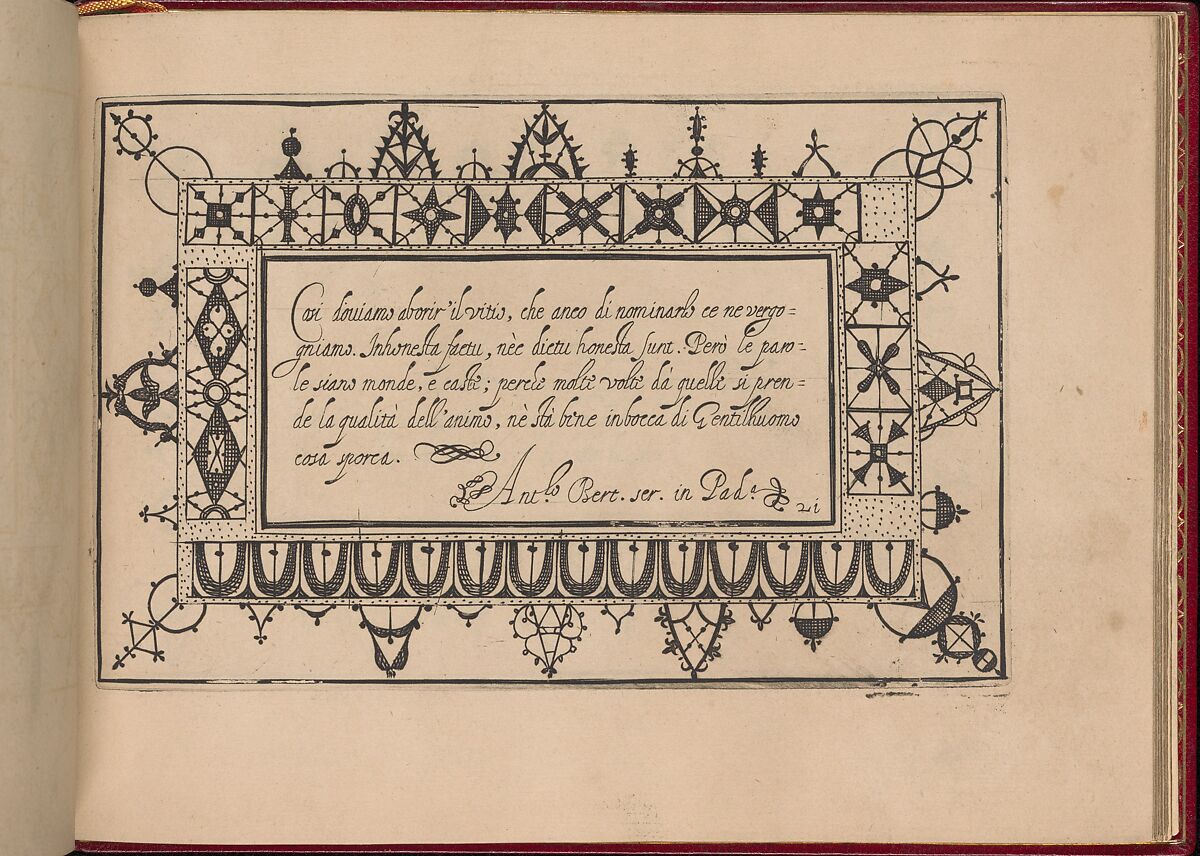 Cosi douiamo aborir' il vitio, che anco di nominarlo ce ne vergo=
gniamo. Inhonesta factu, nèc dictu honesta sunt. Però le paro=
le siano monde, e caste; perche molte volte dà quelle si pren=
de la qualità dell'animo, nè stà bene in bocca di Gentilhuomo
cosa sporca.
Ant.lo Bert. scr. in Pad.a
21